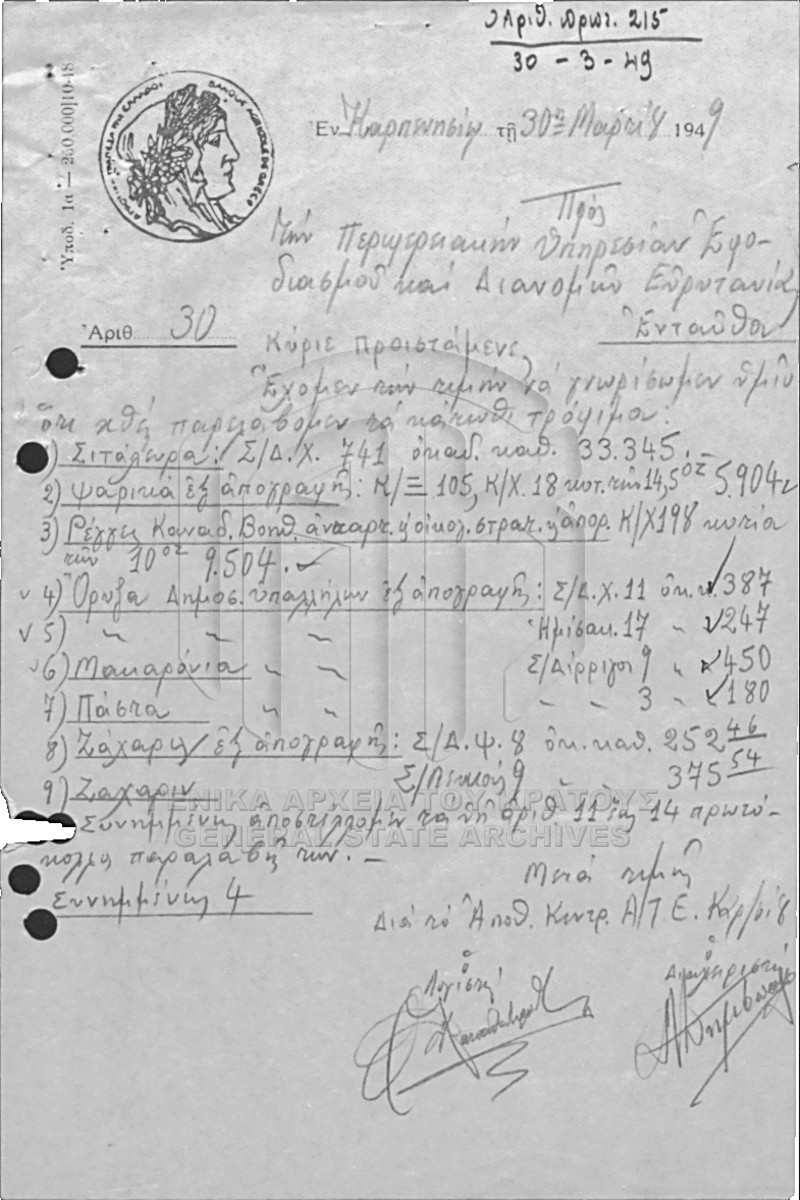 Ἀριθ. πρωτ. 215
30 - 3 - 49
Ὑποδ. 1α — 250.000|10-48
ΑΓΡΟΤΙΚΗ ΤΡΑΠΕΖΑ ΤΗΣ ΕΛΛΑΔΟΣ BANQUE AGRICOLE DE GRECE
Ἐν Καρπενησίῳ τῇ 30ῇ Μαρτίου 1949
Πρὸς
Τὴν Περιφερειακὴν Ὑπηρεσίαν Ἐφο-
διασμοῦ καὶ Διανομῶν Εὐρυτανίας
Ἀριθ. 30
Ἐνταῦθα
Κύριε Προϊστάμενε,
Ἔχομεν τὴν τιμὴν νὰ γνωρίσωμεν ὑμῖν
ὅτι χθὲς παρελάβομεν τὰ κάτωθι τρόφιμα:
1) Σιτάλευρα: Σ/Δ.Χ. 741 ὀκάδ. καθ. 33.345.-
2) Ψαρικὰ ἐξ ἀπογραφῆς: Κ/Ξ 105, Κ/Χ. 18 κυτ. τῶν 14,5 οz 5.904
3) Ρέγγες Καναδ. Βοηθ. ἀνταρτ. ἢ οἰκογ. στρατ. ἢ ἀπορ. Κ/Χ 198 κυτία
τῶν 10 οz 9.504.
4) Ὄρυζα Δημοσ. ὑπαλλήλων ἐξ ἀπογραφῆς: Σ/Δ.Χ. 11 ὀκ. κ. 387
5) " " " Ἡμίσακ. 17 " 247
6) Μακαρόνια " " Σ/Δίρριγοι 9 " 450
7) Πάστα " " " " 3 " 180
8) Ζάχαρις ἐξ ἀπογραφῆς: Σ/Δ.Ψ. 8 ὀκ. καθ. 252 46
9) Ζάχαριν Σ/Λευκοὶ 9 " " 375 54
ΓΕΝΙΚΑ ΑΡΧΕΙΑ ΤΟΥ ΚΡΑΤΟΥΣ
Συνημμένως ἀποστέλλομεν τὰ ὑπ' ἀριθ 11 ἕως 14 πρωτό-
GENERAL STATE ARCHIVES
κολλα παραλαβῆς των. -
Μετὰ τιμῆς
Συνημμένως 4
Διὰ τὸ Ἀποθ. Κεντρ. Α/Τ.Ε. Καρ/σίου
ὁ ὁ
Λογιστὴς Διαχειριστὴς